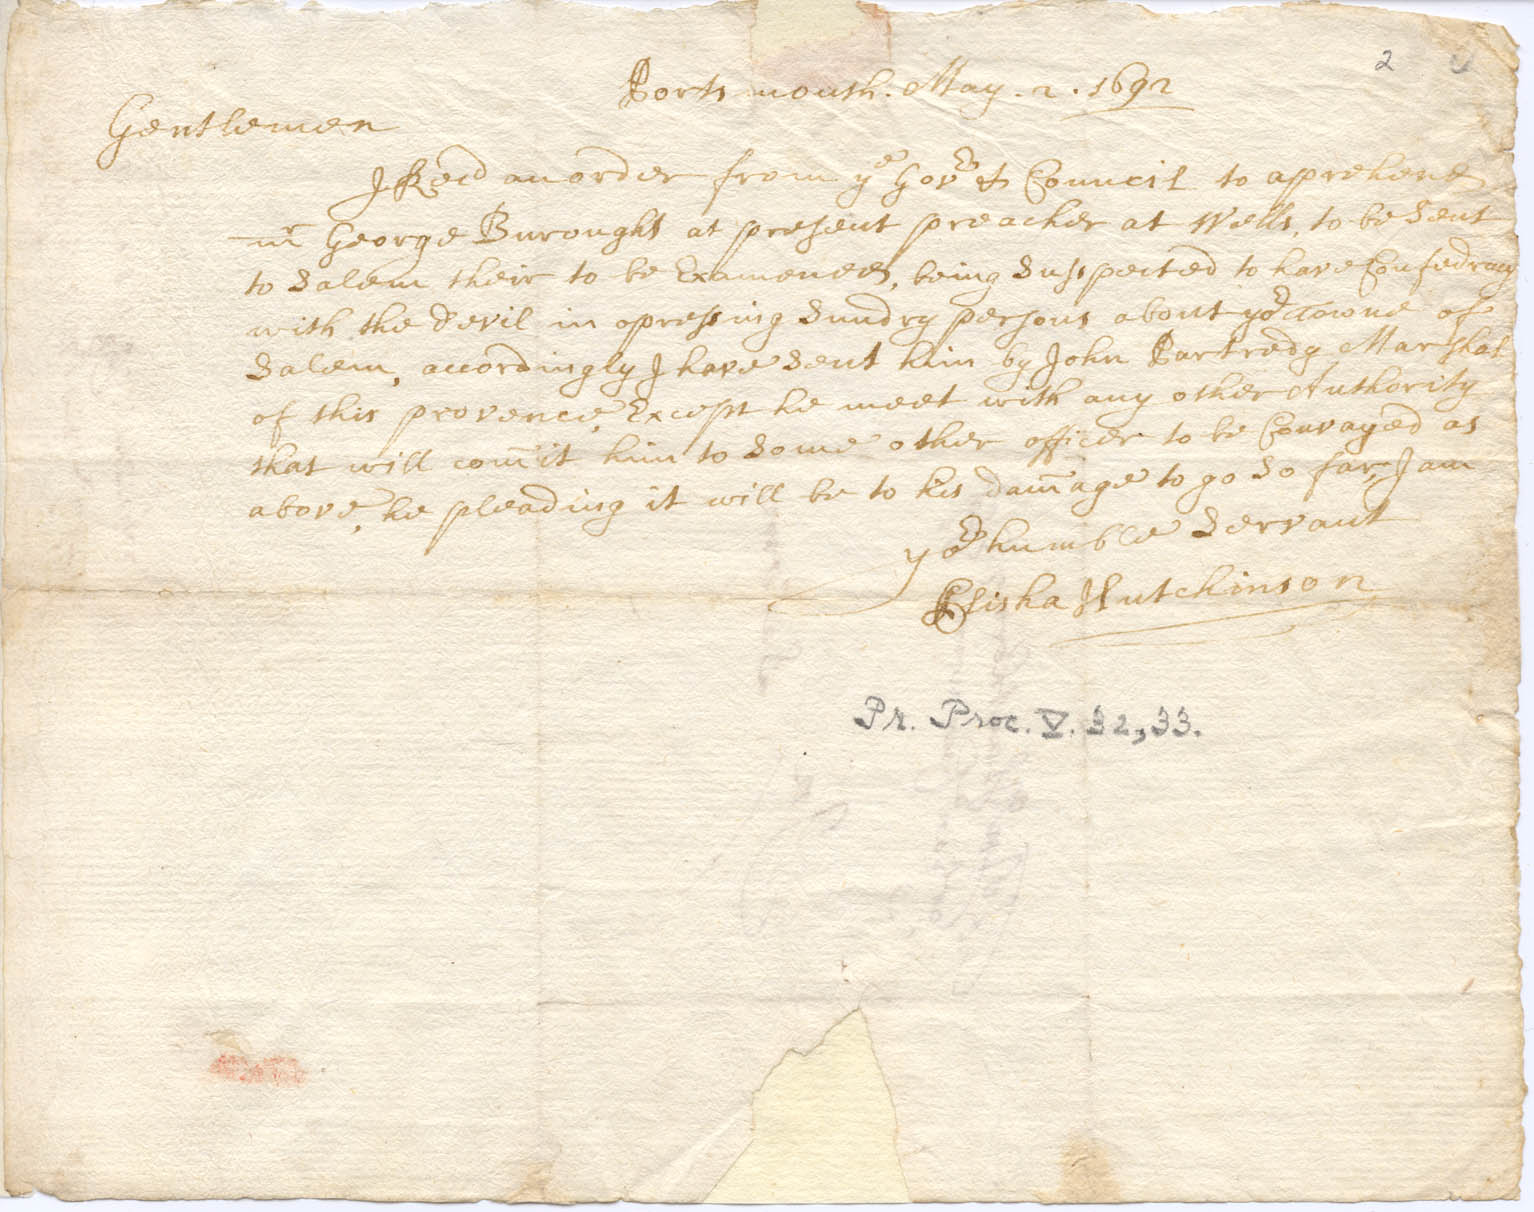 2
Portsmouth. May. 2. 1692
Gentlemen
I Rec'd an order from ye Gover & Council to aprehend
mr George Buroughs at present preacher at Wells, to be Sent
to Salem their to be Examened, being Suspected to have Confedracy
with the devil in opressing Sundry persons about yor Towne of
Salem, accordingly I have Sent him by John Partredg Marshal
of this provence, Except he meet with any other Authority
that will com̄it him to Some other officer to be Convayed as
above, he pleading it will be to his dam̄age to go So far, I am
yor humble Servant
Elisha Hutchinson
Pr. Proc. V. 32, 33.